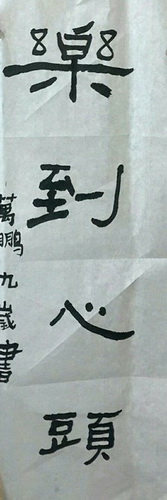 樂到心頭
萬鵬九歲書